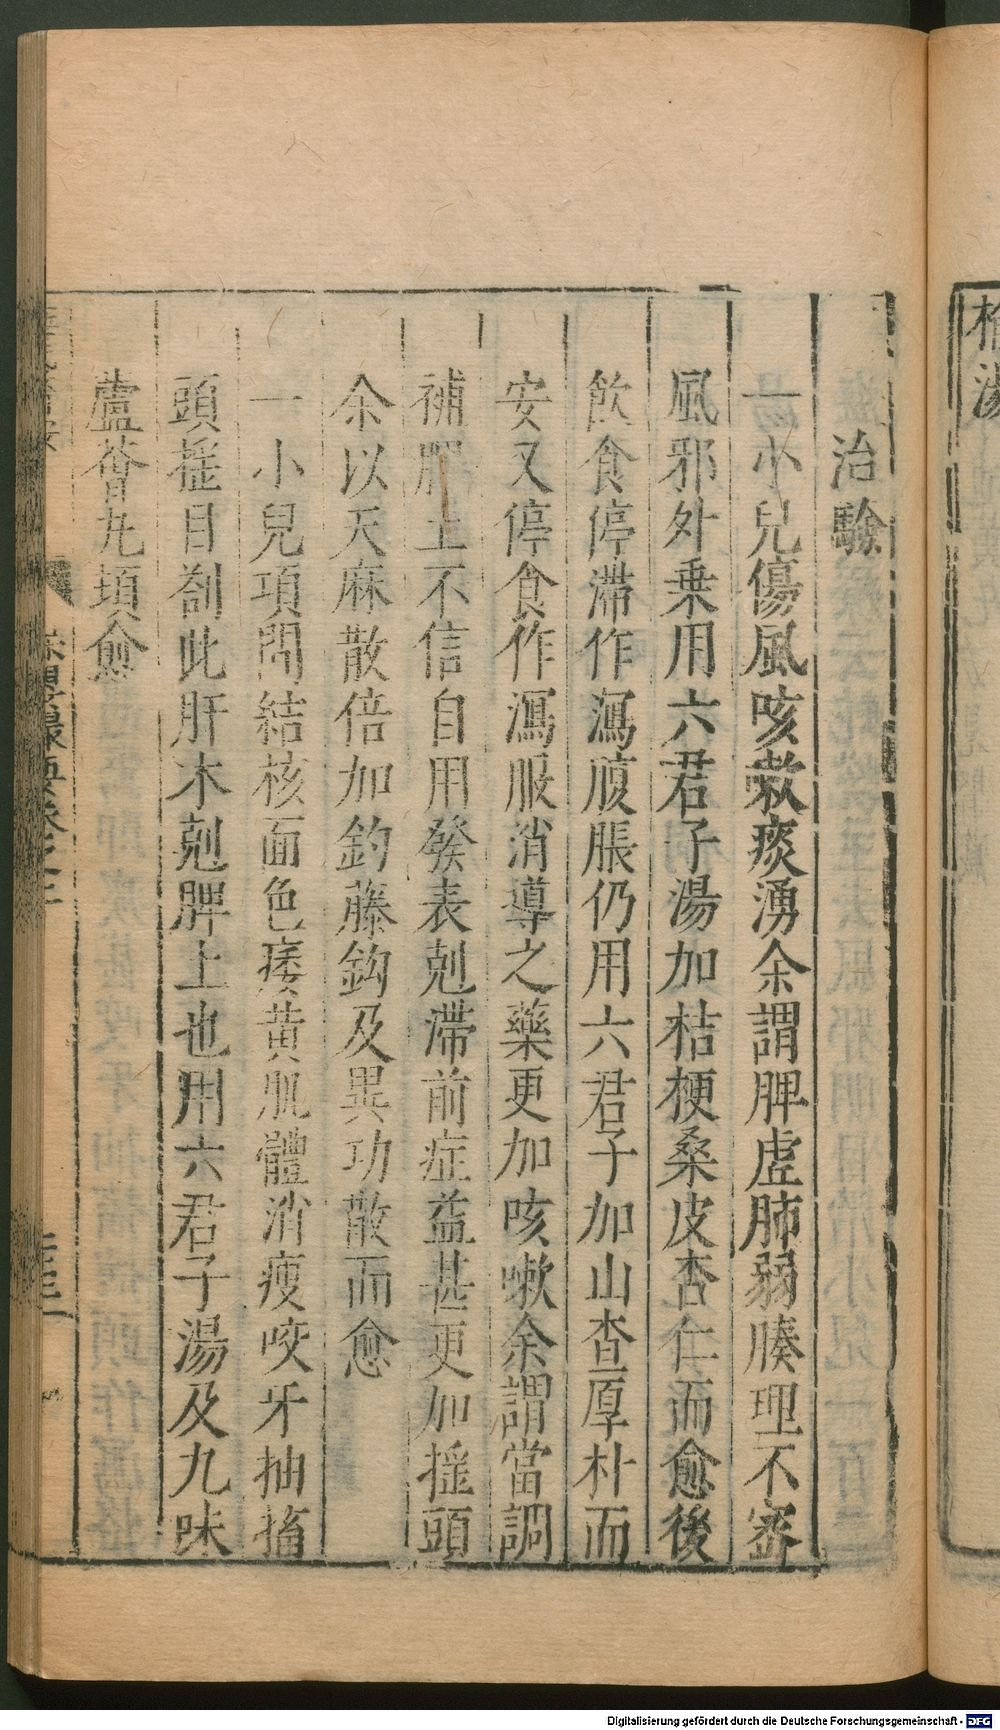 治驗
一小兒傷風咳嗽痰湧余謂脾虛肺弱腠理不密
風邪外乗用六君子湯加桔梗桑皮杏仁而愈後
飲食停滯作瀉腹脹仍用六君子加山查厚朴而
安又停食作瀉服消導之藥更加咳嗽余謂當調
補脾土不信自用發表剋滯前症益甚更加揺頭
余以天麻散倍加釣藤鈎及異功散而愈
一小兒項間結核面色痿黄肌體消瘦咬牙抽搐
頭揺目劄此肝木剋脾土也用六君子湯及九味
蘆薈丸頓愈
Digitalisierung gefördert durch die Deutsche Forschungsgemeinschaft - DFG